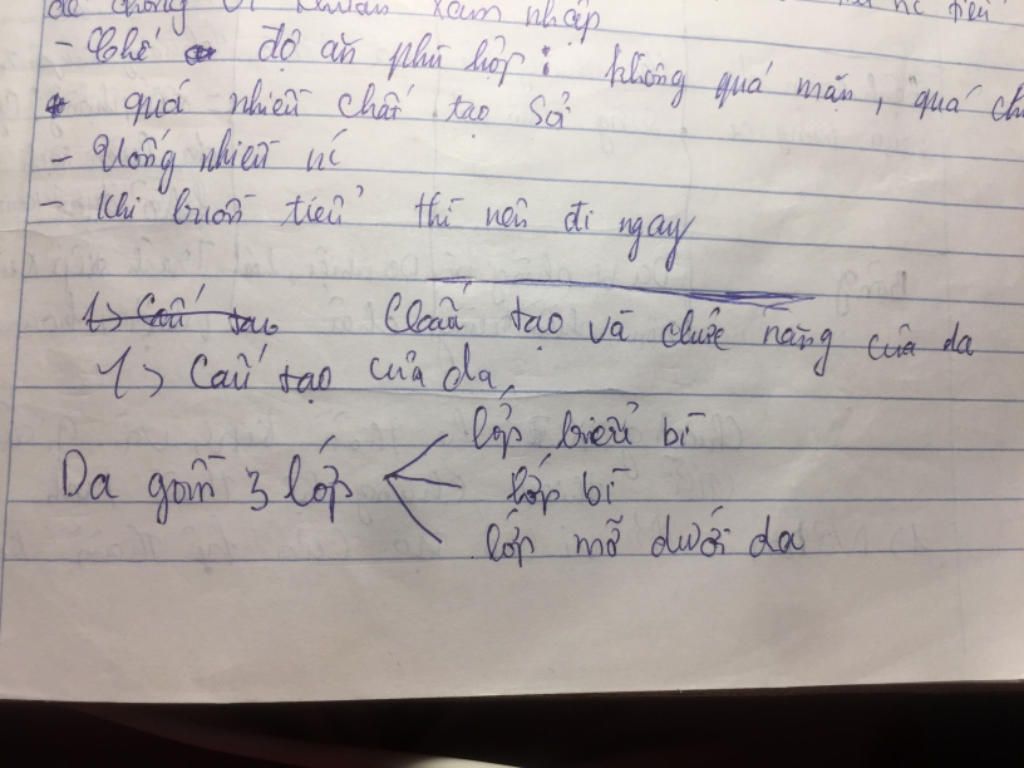 để chống vi khuẩn xâm nhập
nc tiểu
- Chế độ ăn phù hợp: không quá mặn, quá
quá nhiều chất tạo sỏi
- Uống nhiều nc
- Khi buồn tiểu thì nên đi ngay
1> Cấu tạo Cấu tạo và chức năng của da
1> Cấu tạo của da,
Da gồm 3 lớp
lớp biểu bì
lớp bì
lớp mỡ dưới da